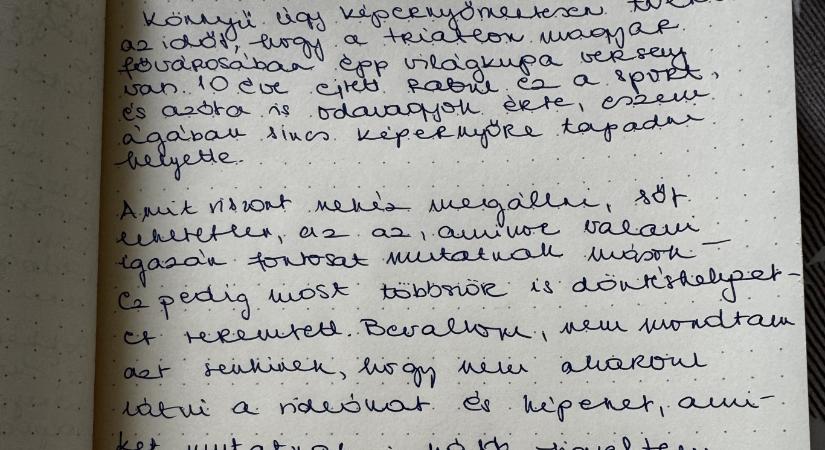 Könnyű úgy képernyőmentesen
az időt, hogy a triatlon magyar
fővárosában épp világkupa verseny
van. 10 éve ejtett rabul ez a sport,
és azóta is odavagyok érte, eszem
ágában sincs képernyőre tapadni
helyette.
Amit viszont nehéz megállni, sőt
lehetetlen, az az, amikor valami
igazán fontosat mutatnak mások –
ez pedig most többször is döntéshelyzet-
et teremtett. Bevallom, nem mondtam
azt senkinek, hogy nem akarom
látni a videókat és képeket, ami-
ket